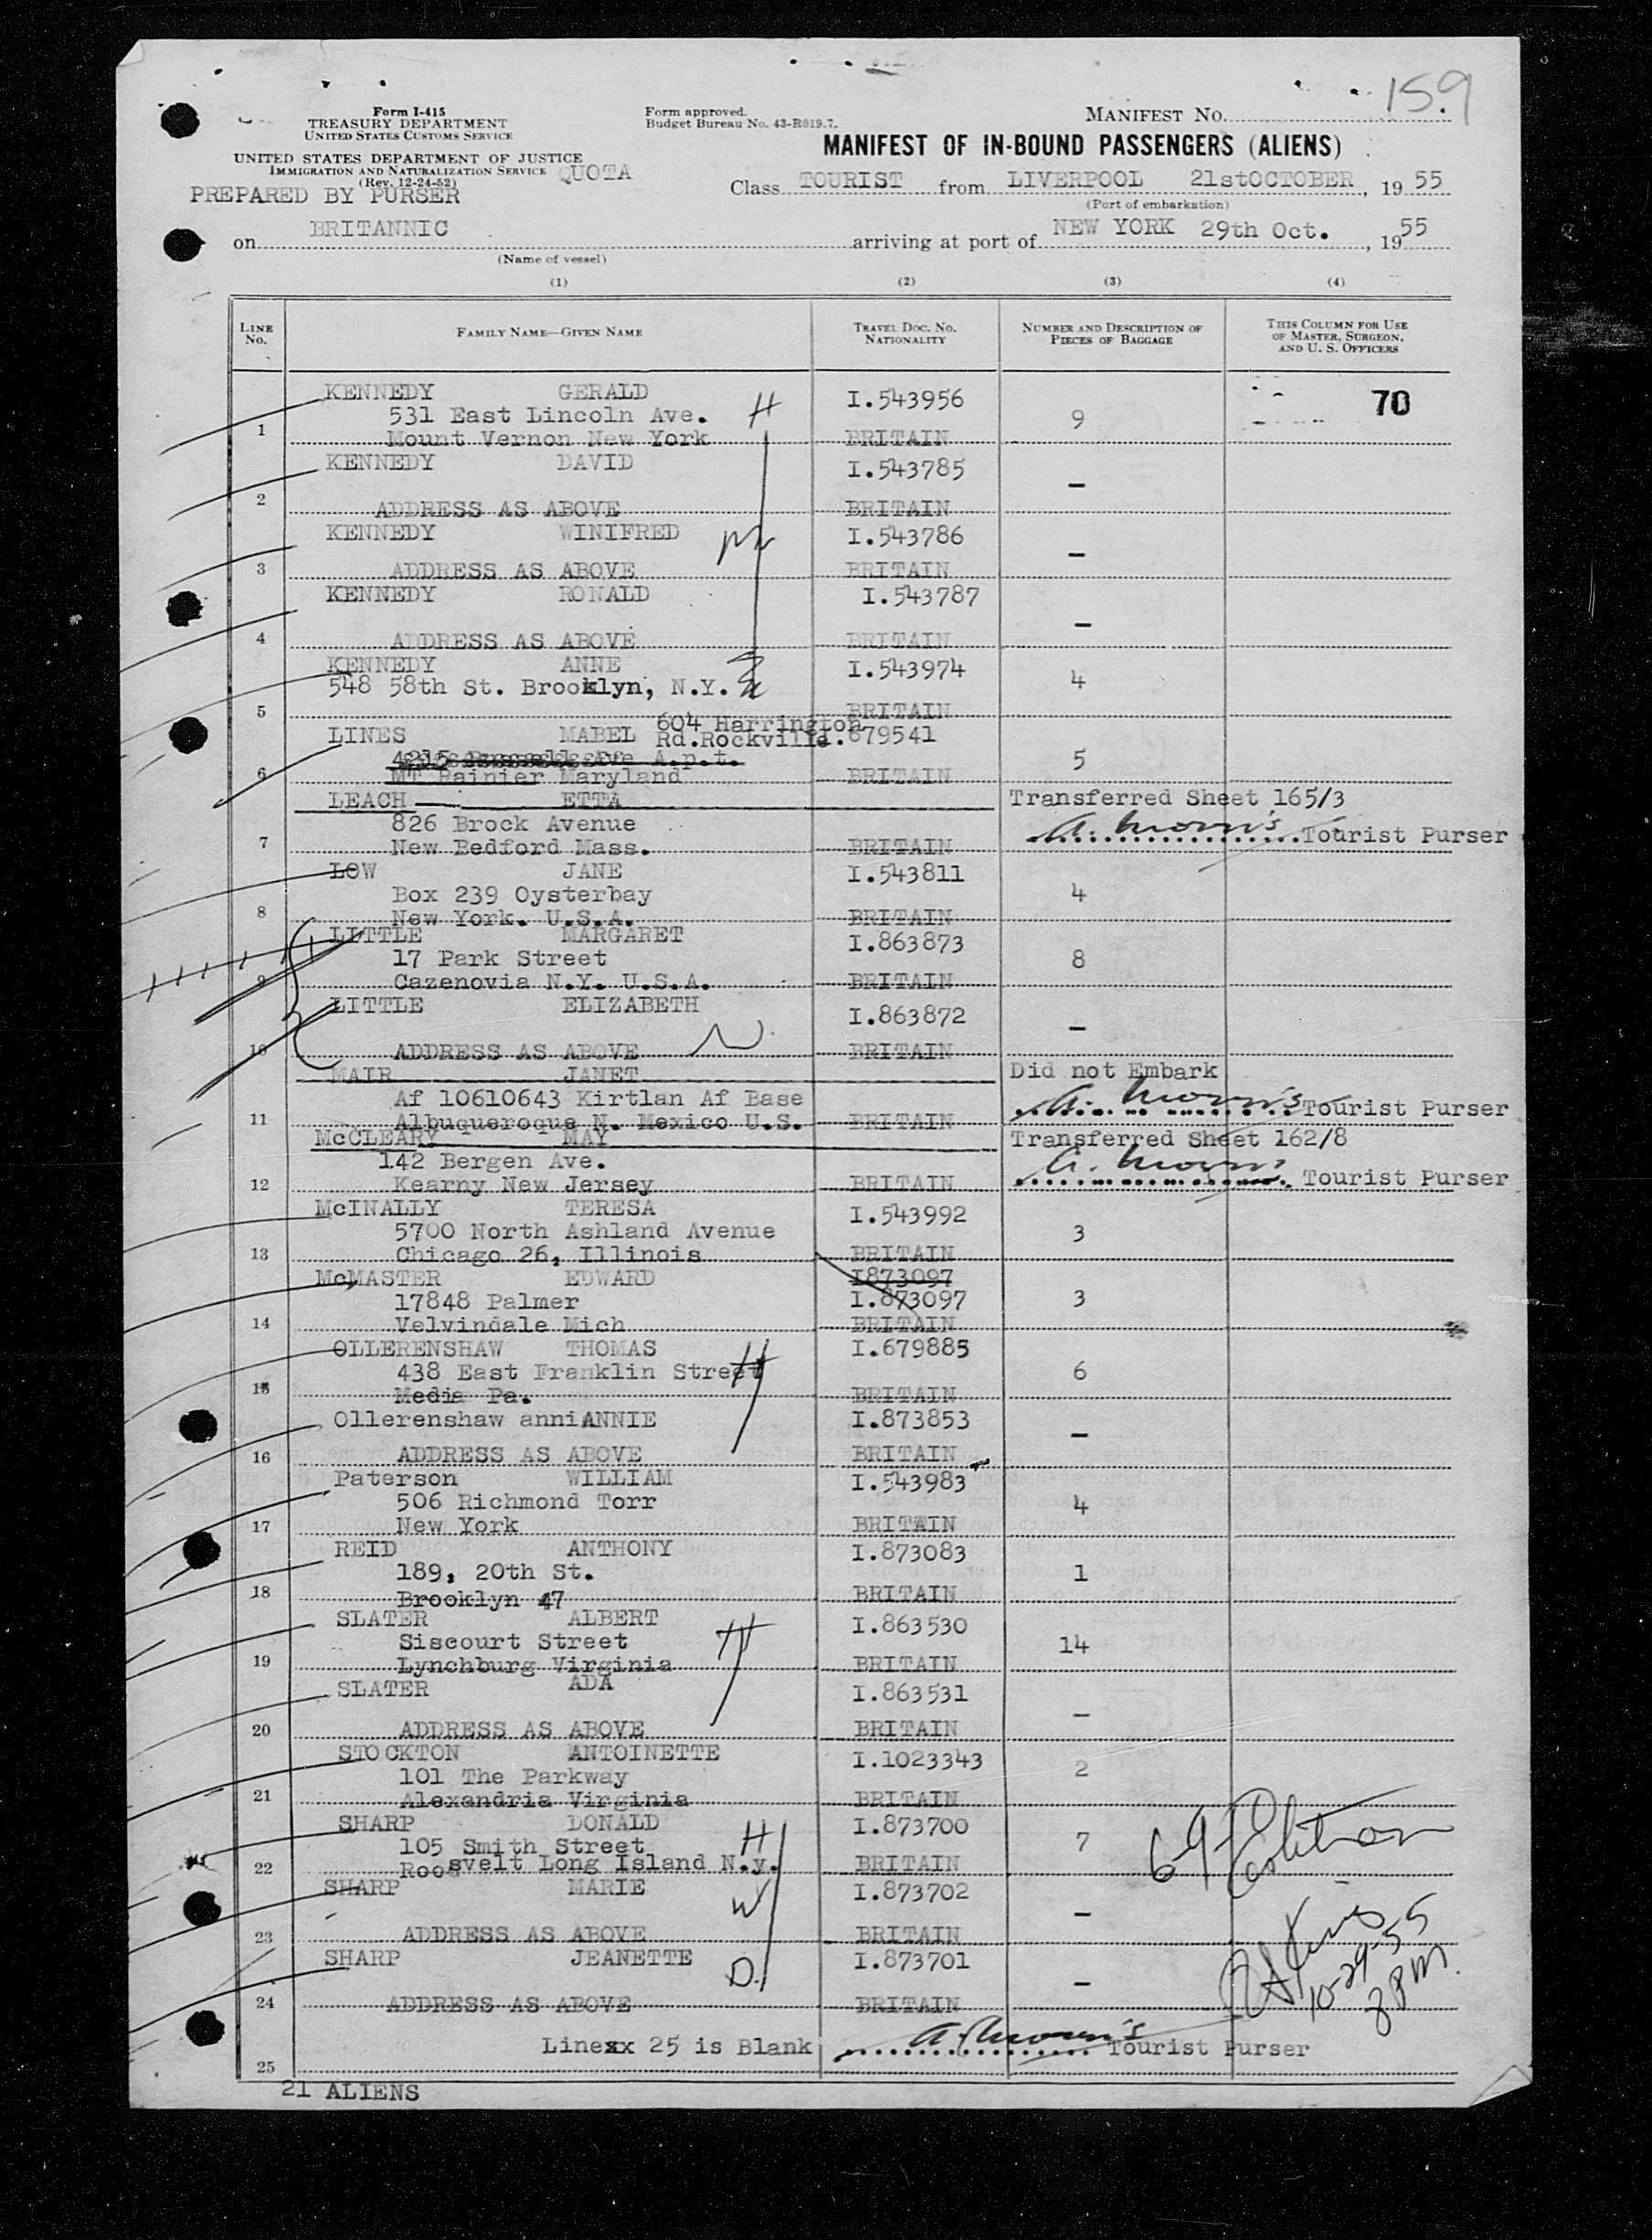 159
Form I-415
TREASURY DEPARTMENT
UNITED STATES CUSTOMS SERVICE
UNITED STATES DEPARTMENT OF JUSTICE
IMMIGRATION AND NATURALIZATION SERVICE QUOTA
(Rev. 12-24-52)
PREPARED BY PURSER
Form approved.
Budget Bureau No. 43-R019.7.
MANIFEST NO.
MANIFEST OF IN-BOUND PASSENGERS (ALIENS)
Class TOURIST from LIVERPOOL 21stOCTOBER, 19 55
(Port of embarkation)
on BRITANNIC arriving at port of NEW YORK 29th Oct. , 19 55
(Name of vessel)
(1) (2) (3) (4)
LINE No. FAMILY NAME—GIVEN NAME TRAVEL DOC. NO. NATIONALITY NUMBER AND DESCRIPTION OF PIECES OF BAGGAGE THIS COLUMN FOR USE OF MASTER, SURGEON, AND U. S. OFFICERS
KENNEDY GERALD I.543956 70
531 East Lincoln Ave. H 9
1 Mount Vernon New York BRITAIN
KENNEDY DAVID I.543785
2 ADDRESS AS ABOVE BRITAIN –
KENNEDY WINIFRED I.543786
3 ADDRESS AS ABOVE BRITAIN –
KENNEDY RONALD I.543787
4 ADDRESS AS ABOVE BRITAIN –
KENNEDY ANNE I.543974
548 58th St. Brooklyn, N.Y. 4
5 BRITAIN
LINES MABEL 604 Harrington
Rd.Rockville. 679541
4215 Ave A.p.t. 5
6 MT Rainier Maryland BRITAIN
LEACH ETTA Transferred Sheet 165/3
826 Brock Avenue A. Morris Tourist Purser
7 New Bedford Mass. BRITAIN
LOW JANE I.543811
Box 239 Oysterbay 4
8 New York. U.S.A. BRITAIN
LITTLE MARGARET I.863873
17 Park Street 8
9 Cazenovia N.Y. U.S.A. BRITAIN
LITTLE ELIZABETH I.863872
10 ADDRESS AS ABOVE BRITAIN –
MAIR JANET Did not Embark
Af 10610643 Kirtlan Af Base A. Morris Tourist Purser
11 Albuqueroque N. Mexico U.S. BRITAIN
McCLEARY MAY Transferred Sheet 162/8
142 Bergen Ave. A. Morris Tourist Purser
12 Kearny New Jersey BRITAIN
McINALLY TERESA I.543992
5700 North Ashland Avenue 3
13 Chicago 26, Illinois BRITAIN
McMASTER EDWARD I873097
17848 Palmer I.873097 3
14 Velvindale Mich BRITAIN
OLLERENSHAW THOMAS I.679885
438 East Franklin Street H 6
15 Media Pa. BRITAIN
Ollerenshaw anniANNIE I.873853
16 ADDRESS AS ABOVE BRITAIN –
Paterson WILLIAM I.543983
506 Richmond Torr 4
17 New York BRITAIN
REID ANTHONY I.873083
189, 20th St. 1
18 Brooklyn 47 BRITAIN
SLATER ALBERT I.863530
Siscourt Street H 14
19 Lynchburg Virginia BRITAIN
SLATER ADA I.863531
20 ADDRESS AS ABOVE BRITAIN –
STOCKTON ANTOINETTE I.1023343
101 The Parkway 2
21 Alexandria Virginia BRITAIN
SHARP DONALD I.873700
105 Smith Street H 7
22 Roosvelt Long Island N.y. BRITAIN
SHARP MARIE I.873702
W
23 ADDRESS AS ABOVE BRITAIN –
SHARP JEANETTE I.873701
D. 10-29-55
24 ADDRESS AS ABOVE BRITAIN – 8 PM.
Linexx 25 is Blank A. Morris Tourist Purser
25
21 ALIENS